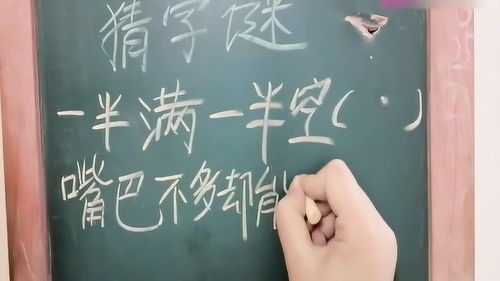 猜字谜
一半满一半空( )
嘴巴不多却能